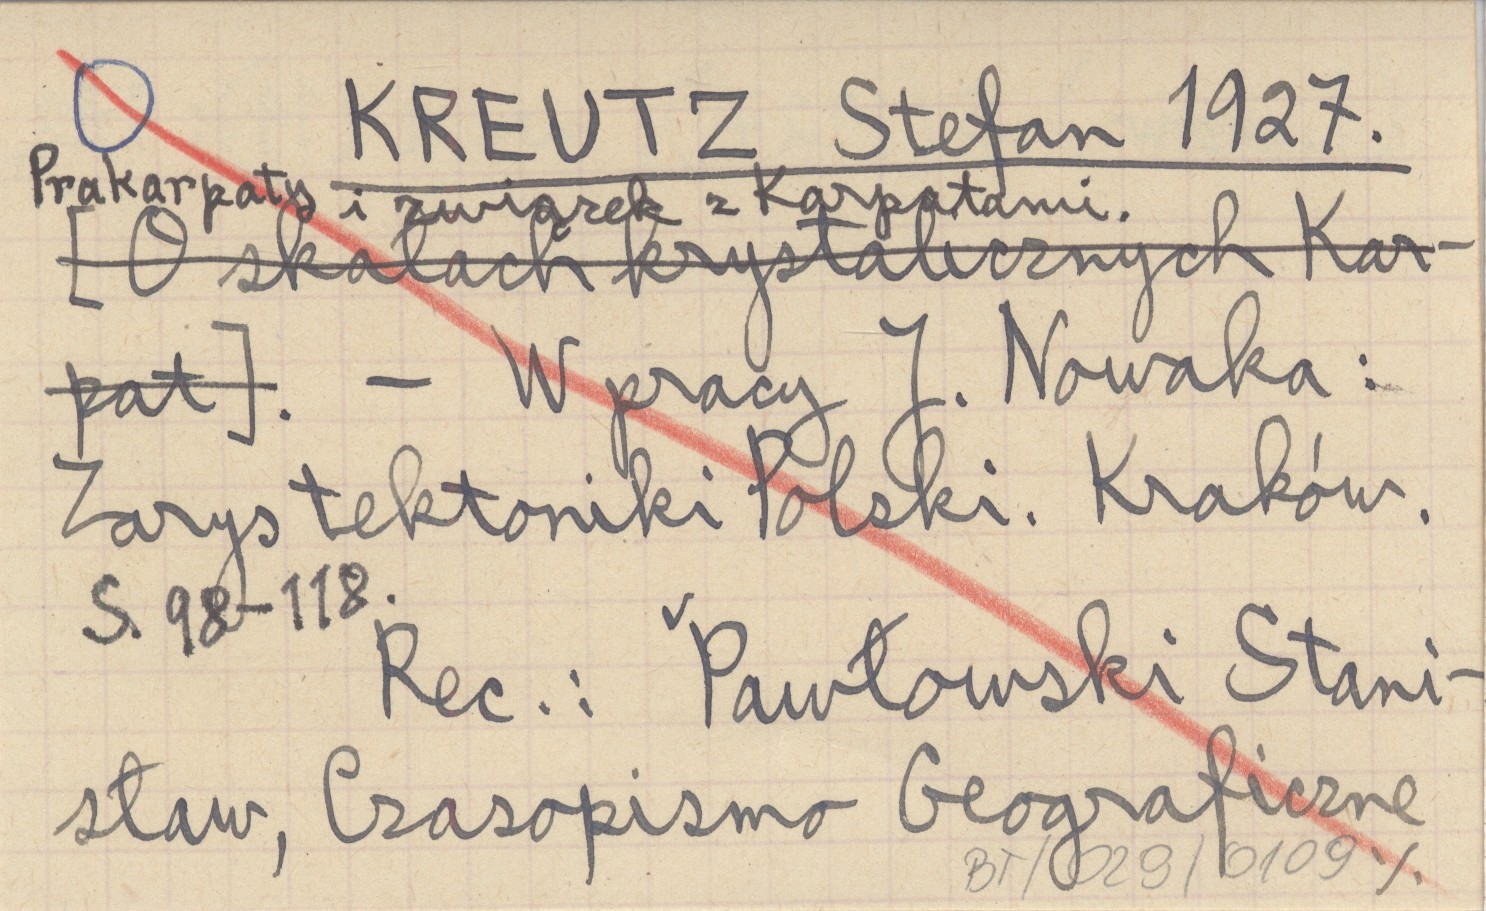 KREUTZ Stefan 1927.
Prakarpaty i związek z Karpatami.
[O skałach krystalicznych Kar-
pat]. – W pracy J. Nowaka:
Zarys tektoniki Polski. Kraków.
S. 98–118.
Rec.: Pawłowski Stani-
sław, Czasopismo Geograficzne
BT/029/0109 ./.